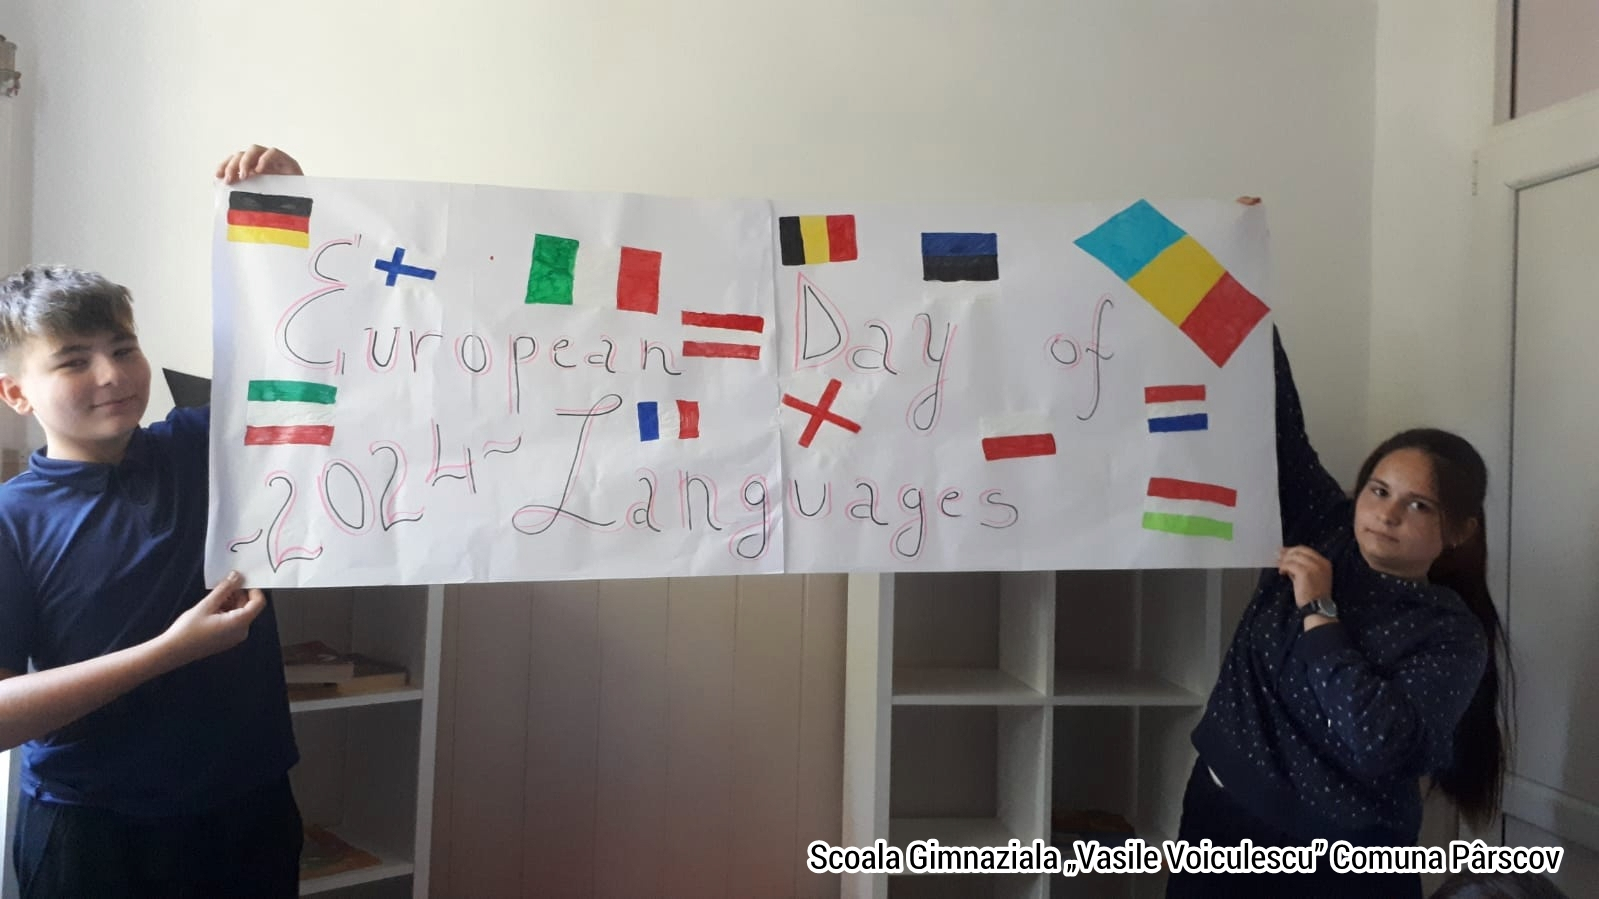 European Day of
~2024~ Languages
Scoala Gimnaziala „Vasile Voiculescu” Comuna Pârscov